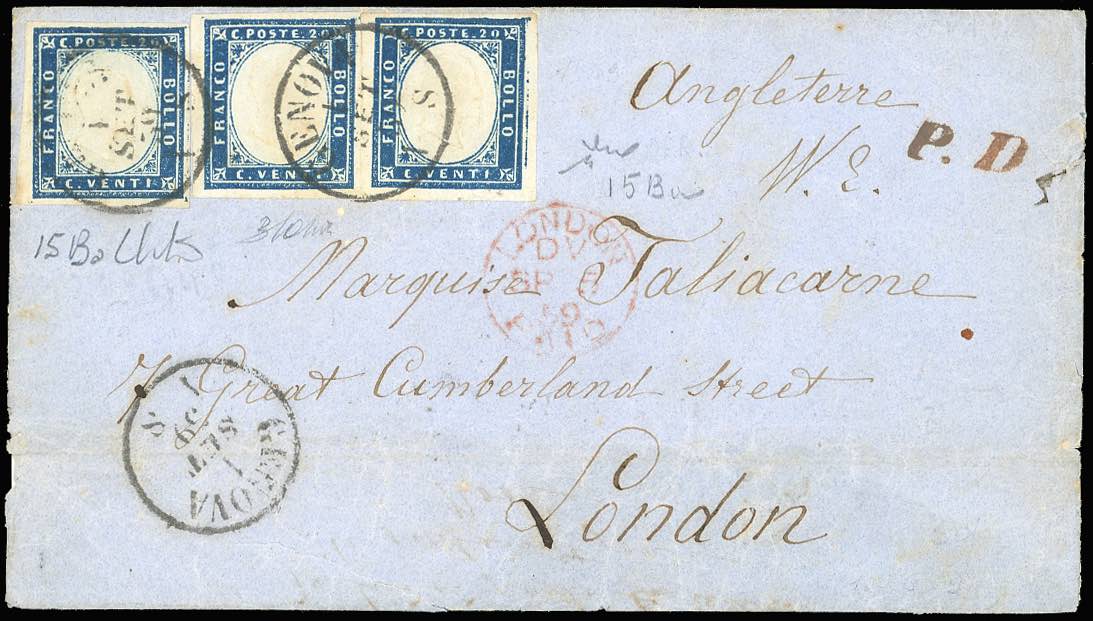 C. POSTE. 20
FRANCO
BOLLO
C. VENTI
C. POSTE. 20
FRANCO
BOLLO
C. VENTI
C. POSTE. 20
FRANCO
BOLLO
C. VENTI
1
SET
59
GENOVA
1
SET
S
Angleterre
W. E.
P. D
15 Ba
15 Ba
LONDON
PAID
Marquise Taliacarne
7 Great Cumberland Street
London
GENOVA
1
SET
59
S 1